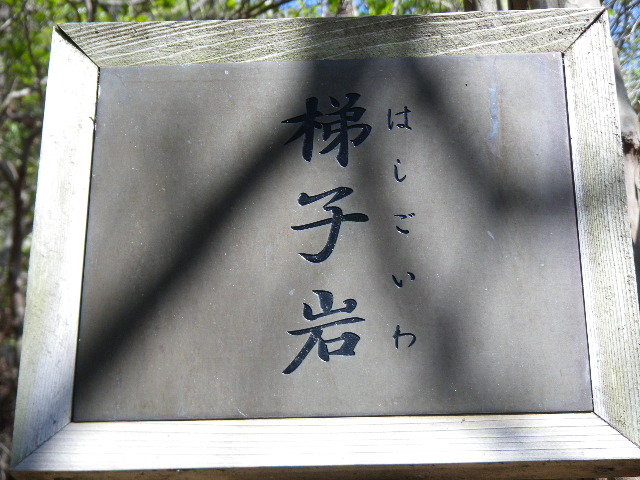 はしごいわ
梯子岩